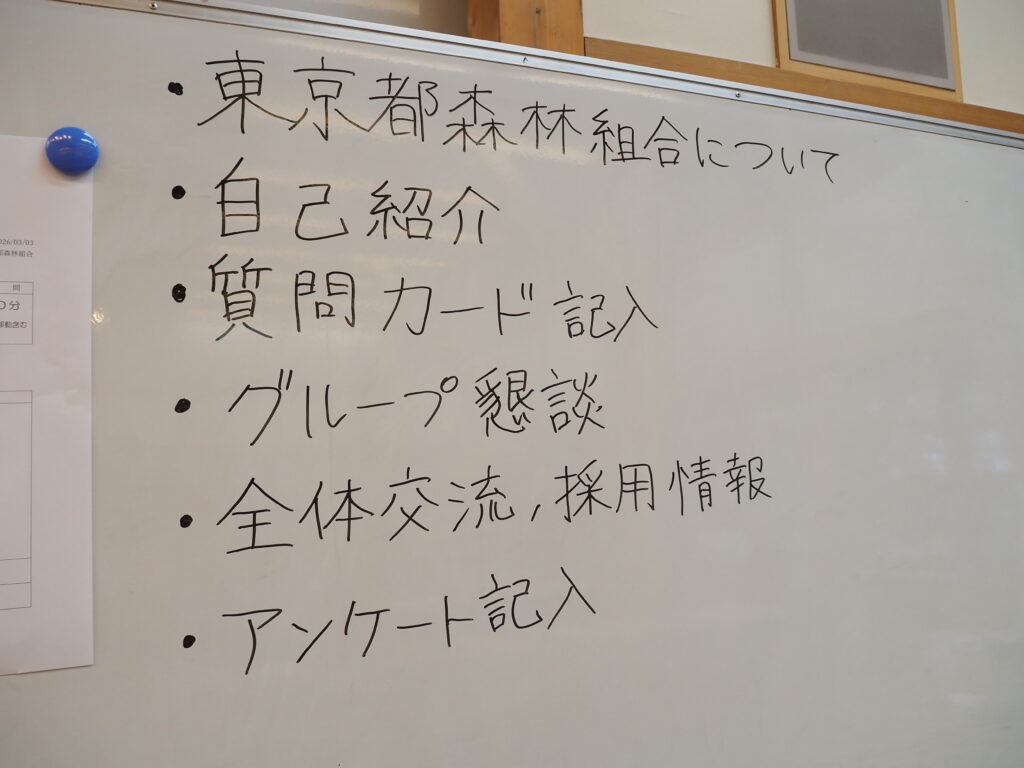 ・東京都森林組合について
・自己紹介
・質問カード記入
・グループ懇談
・全体交流,採用情報
・アンケート記入
026/03/03
都森林組合
間
0分
移動含む